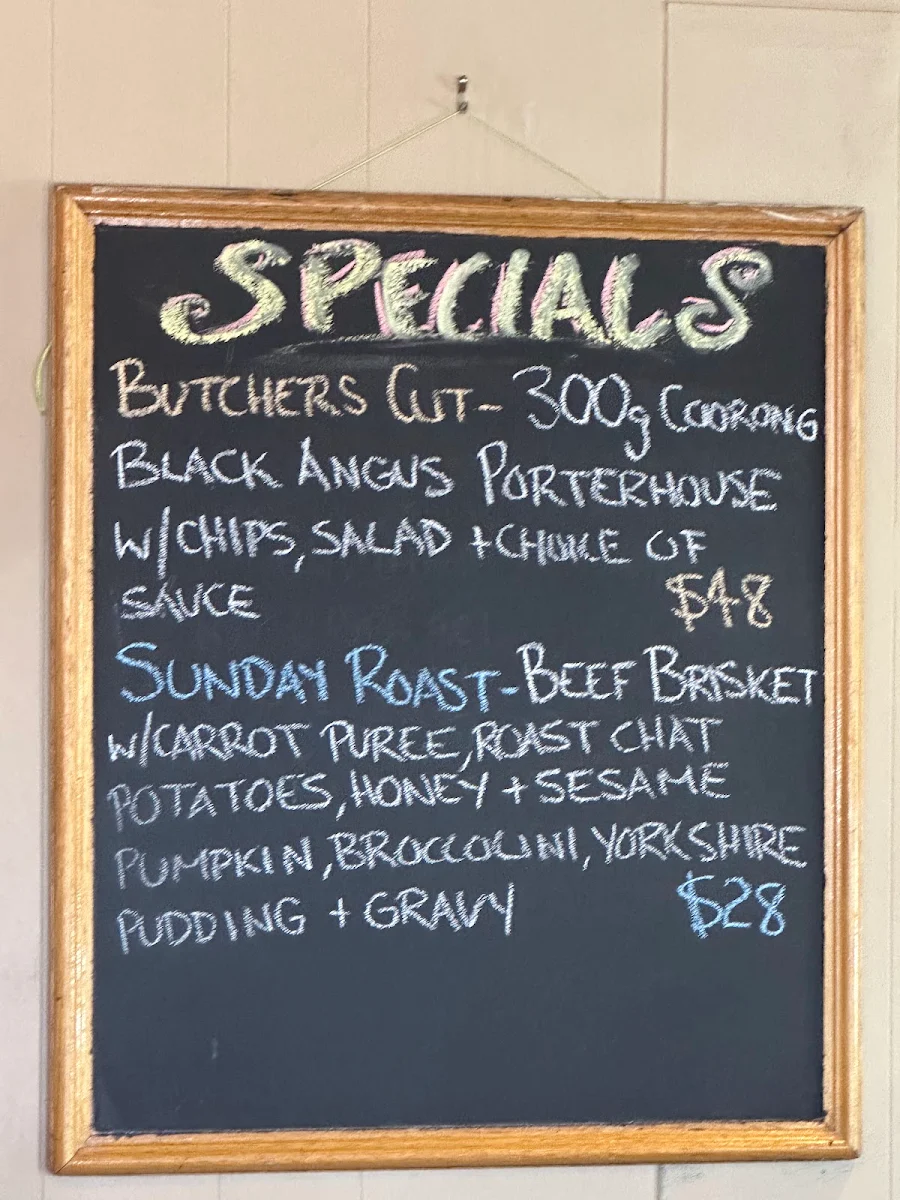 SPECIALS
BUTCHERS CUT- 300g COORONG
BLACK ANGUS PORTERHOUSE
W/CHIPS, SALAD + CHOICE OF
SAUCE $48
SUNDAY ROAST- BEEF BRISKET
W/CARROT PUREE, ROAST CHAT
POTATOES, HONEY + SESAME
PUMPKIN, BROCCOLINI, YORKSHIRE
PUDDING + GRAVY $28